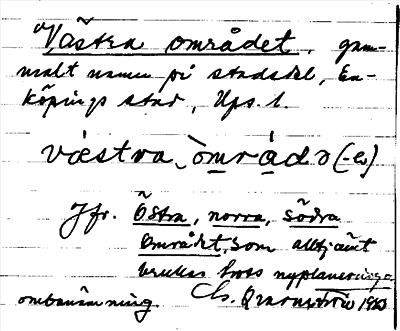 Västra området, gam-
malt namn på stadsdel, En-
köpings stad, Ups. l.
västra området (-e)
Jfr. Östra, norra, södra
området, som alltjämt
brukas trots nyplanerings
ombenämning. 1960